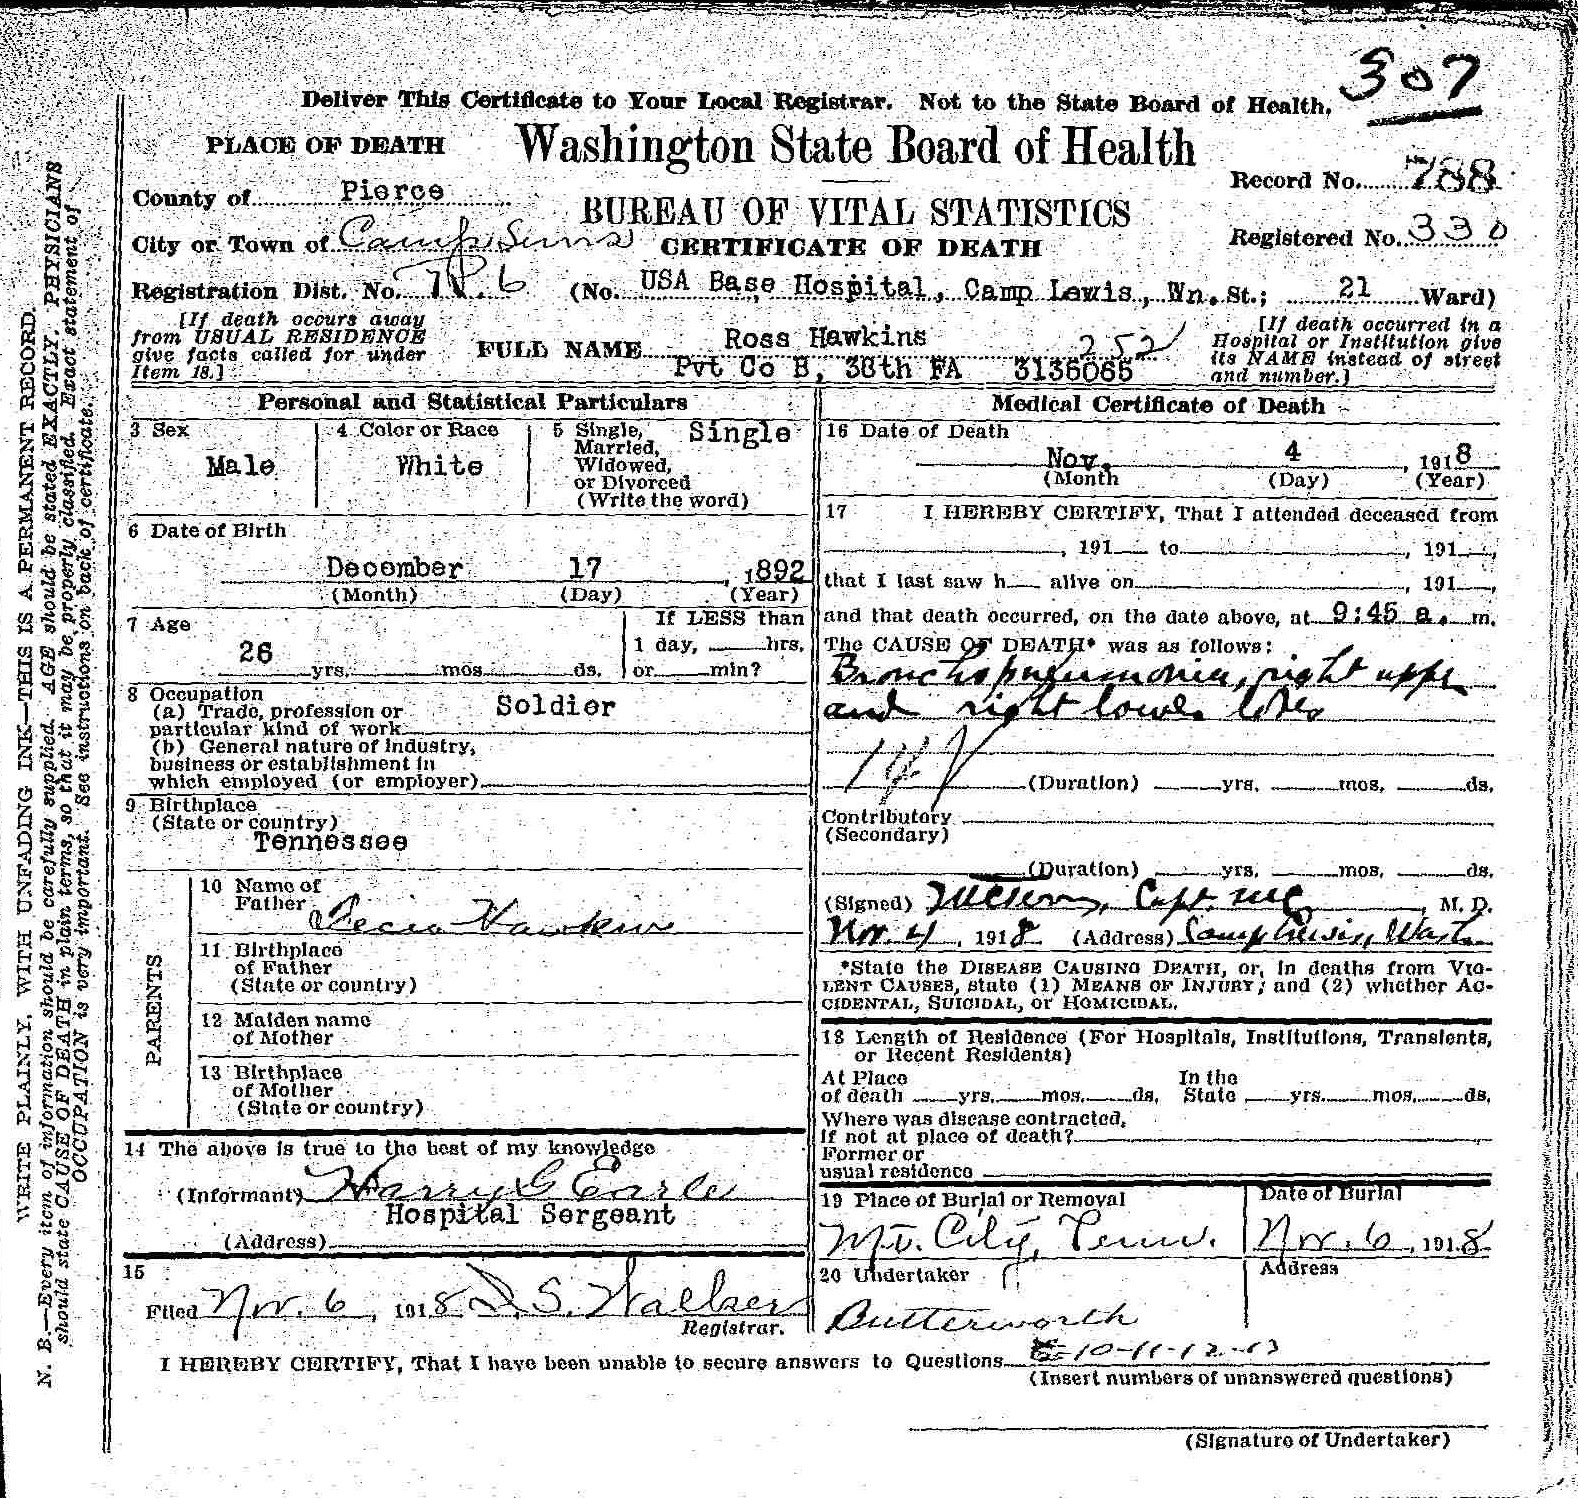 307
Deliver This Certificate to Your Local Registrar. Not to the State Board of Health.
PLACE OF DEATH
Washington State Board of Health
Record No. 788
County of Pierce
BUREAU OF VITAL STATISTICS
City or Town of Camp
CERTIFICATE OF DEATH
Registered No. 330
Registration Dist. No.
(No. USA Base Hospital, Camp Lewis, Wn. St.; 21 Ward)
[If death occurs away
from USUAL RESIDENCE
give facts called for under
Item 18.]
FULL NAME Ross Hawkins 252
Pvt Co B, 38th FA 3136065
[If death occurred in a
Hospital or Institution give
its NAME instead of street
and number.]
Personal and Statistical Particulars
3 Sex
Male
4 Color or Race
White
5 Single,
Married,
Widowed,
or Divorced
(Write the word)
Single
6 Date of Birth
December 17, 1892
(Month) (Day) (Year)
7 Age
26 yrs. mos. ds.
If LESS than
1 day, hrs.
or min?
8 Occupation
(a) Trade, profession or
particular kind of work Soldier
(b) General nature of industry,
business or establishment in
which employed (or employer)
9 Birthplace
(State or country)
Tennessee
PARENTS
10 Name of
Father Hawkins
11 Birthplace
of Father
(State or country)
12 Maiden name
of Mother
13 Birthplace
of Mother
(State or country)
14 The above is true to the best of my knowledge
(Informant) Harry G Earle
Hospital Sergeant
(Address)
15
Filed Nov. 6, 1918 S.
Registrar.
Medical Certificate of Death
16 Date of Death
Nov. 4, 1918
(Month (Day) (Year)
17 I HEREBY CERTIFY, That I attended deceased from
, 191 to , 191 ,
that I last saw h alive on , 191 ,
and that death occurred, on the date above, at 9:45 a. m.
The CAUSE OF DEATH* was as follows:
Bronchopneumonia, right upper
and right lower lobes
(Duration) yrs. mos. ds.
Contributory
(Secondary)
(Duration) yrs. mos. ds.
(Signed) Capt. MC, M. D.
Nov. 4, 1918 (Address) Camp Lewis, Wash.
*State the DISEASE CAUSING DEATH, or, in deaths from VIO-
LENT CAUSES, state (1) MEANS OF INJURY; and (2) whether AC-
CIDENTAL, SUICIDAL, or HOMICIDAL.
18 Length of Residence (For Hospitals, Institutions, Transients,
or Recent Residents)
At Place
of death yrs. mos. ds.
In the
State yrs. mos. ds.
Where was disease contracted,
if not at place of death?
Former or
usual residence
19 Place of Burial or Removal
Mt. City, Tenn.
Date of Burial
Nov. 6, 1918
20 Undertaker
Butterworth
Address
I HEREBY CERTIFY, That I have been unable to secure answers to Questions 10-11-12-13
(Insert numbers of unanswered questions)
(Signature of Undertaker)
WRITE PLAINLY, WITH UNFADING INK—THIS IS A PERMANENT RECORD.
N. B.—Every item of information should be carefully supplied. AGE should be stated EXACTLY. PHYSICIANS
should state CAUSE OF DEATH in plain terms, so that it may be properly classified. Exact statement of
OCCUPATION is very important. See instructions on back of certificate.